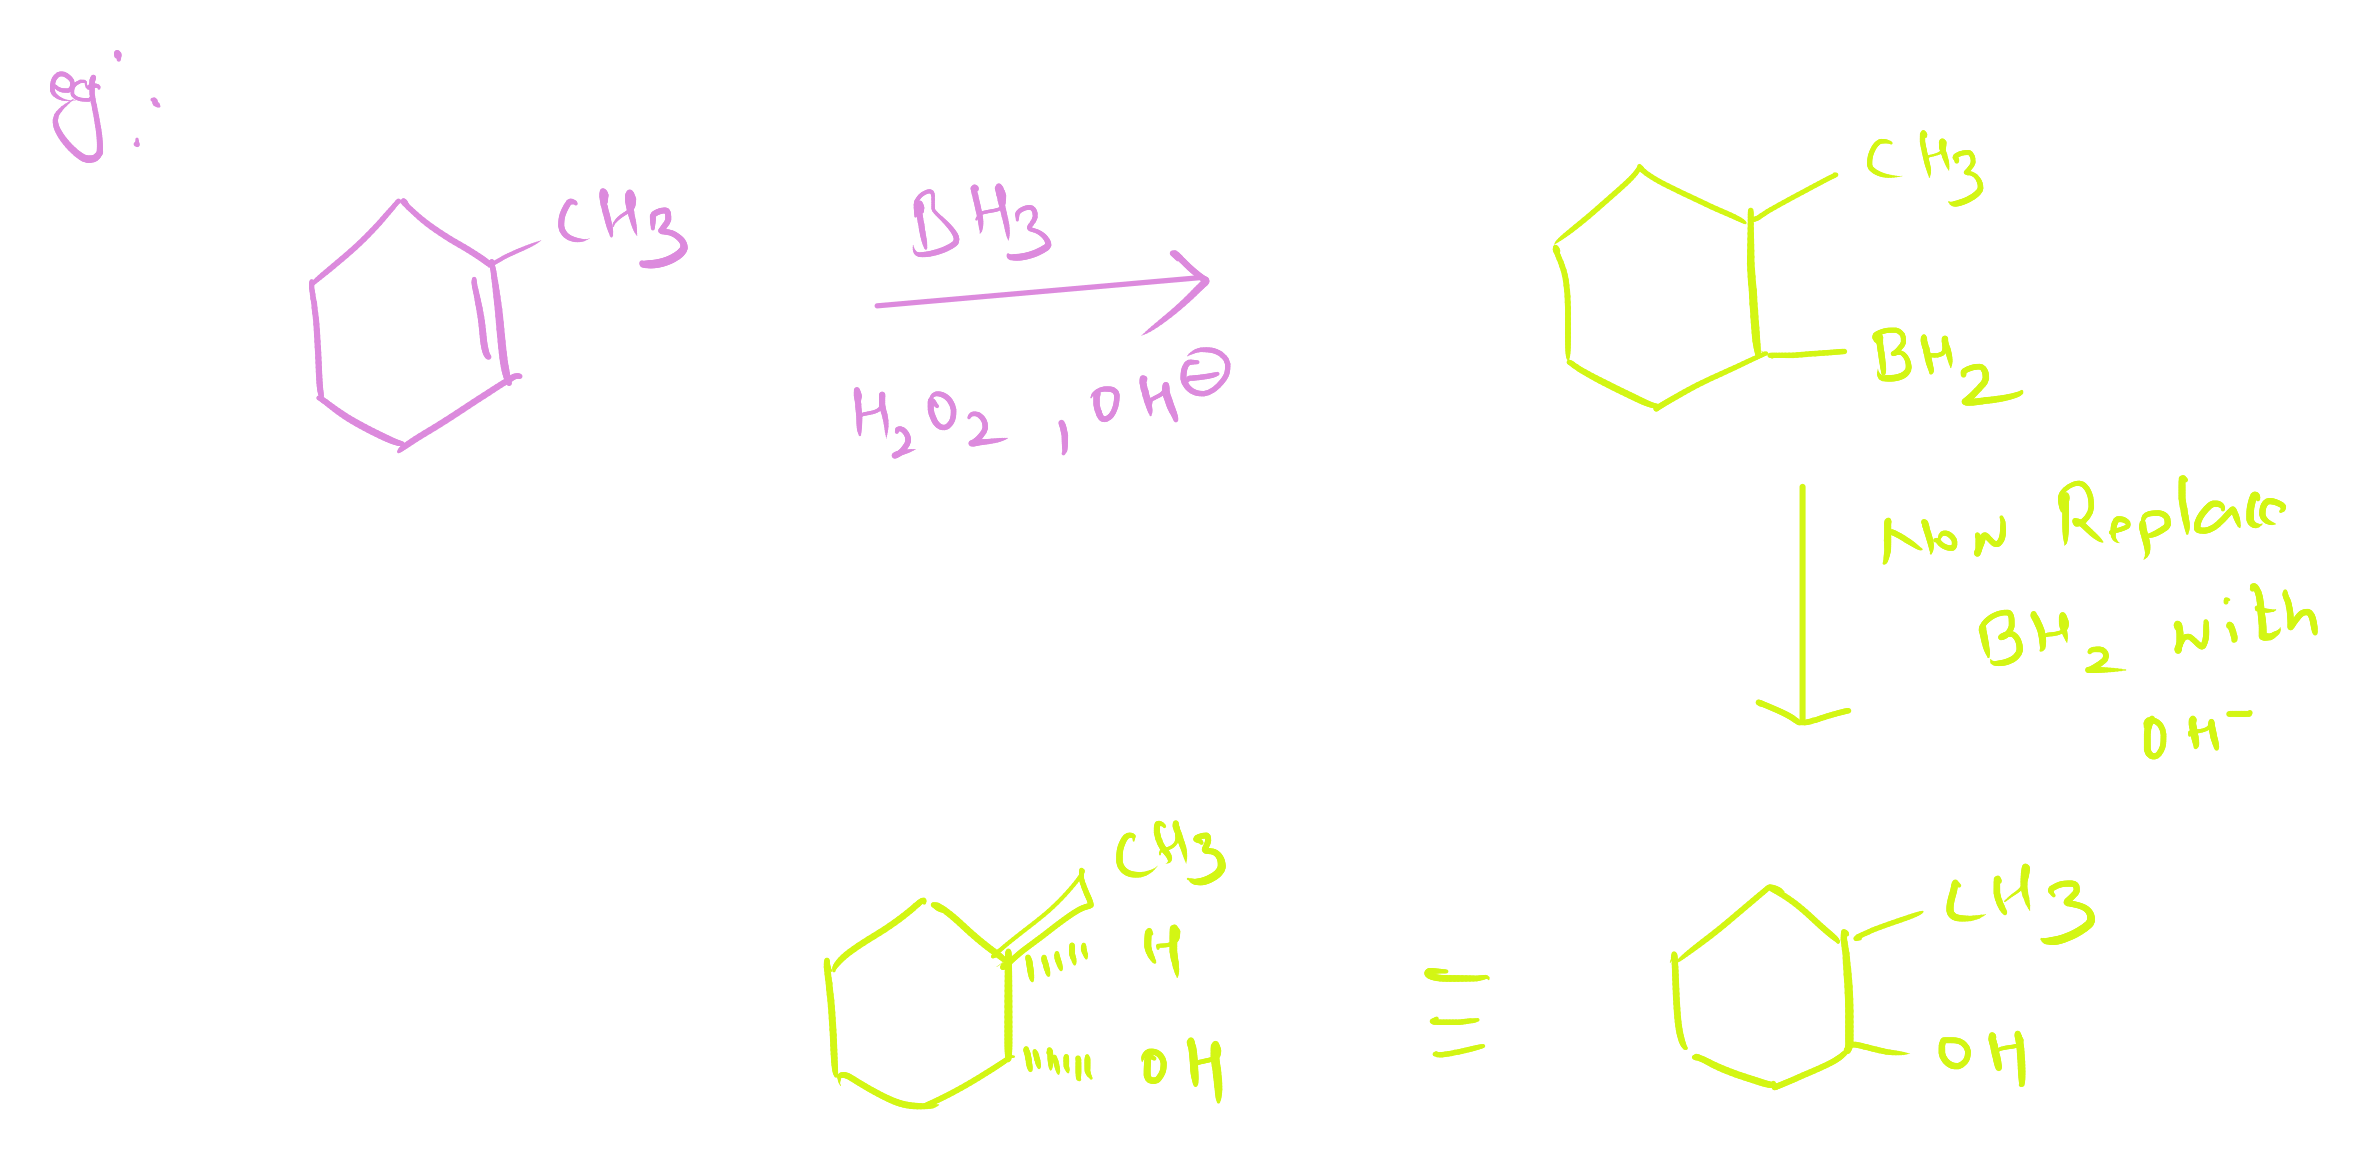 eg:
CH3
BH3
H2O2, OH⊖
CH3
BH2
Now Replace
BH2 with
OH-
CH3
H
OH
≡
CH3
OH